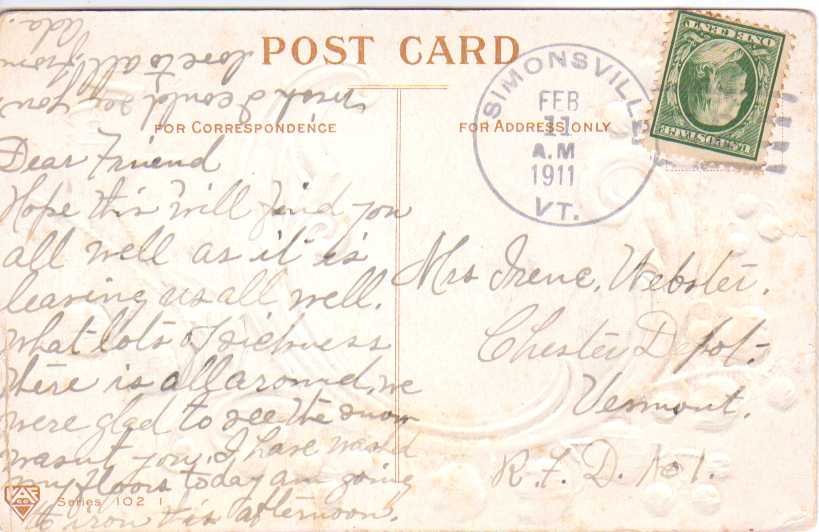 POST CARD
FOR CORRESPONDENCE
FOR ADDRESS ONLY
SIMONSVILLE
FEB
11
A.M
1911
VT.
U.S. POSTAGE
ONE CENT
Dear Friend
Hope this will find you
all well as it is
leaving us all well.
what lots of sickness
there is all around, we
were glad to see the snow
wasnt you. I have washed
my floors today am going
to iron this afternoon.
wish I could see you
love to all, from
Ada.
Mrs Irene, Webster.
Chester Depot.
Vermont.
R.F.D. No 1.
Series 102 I